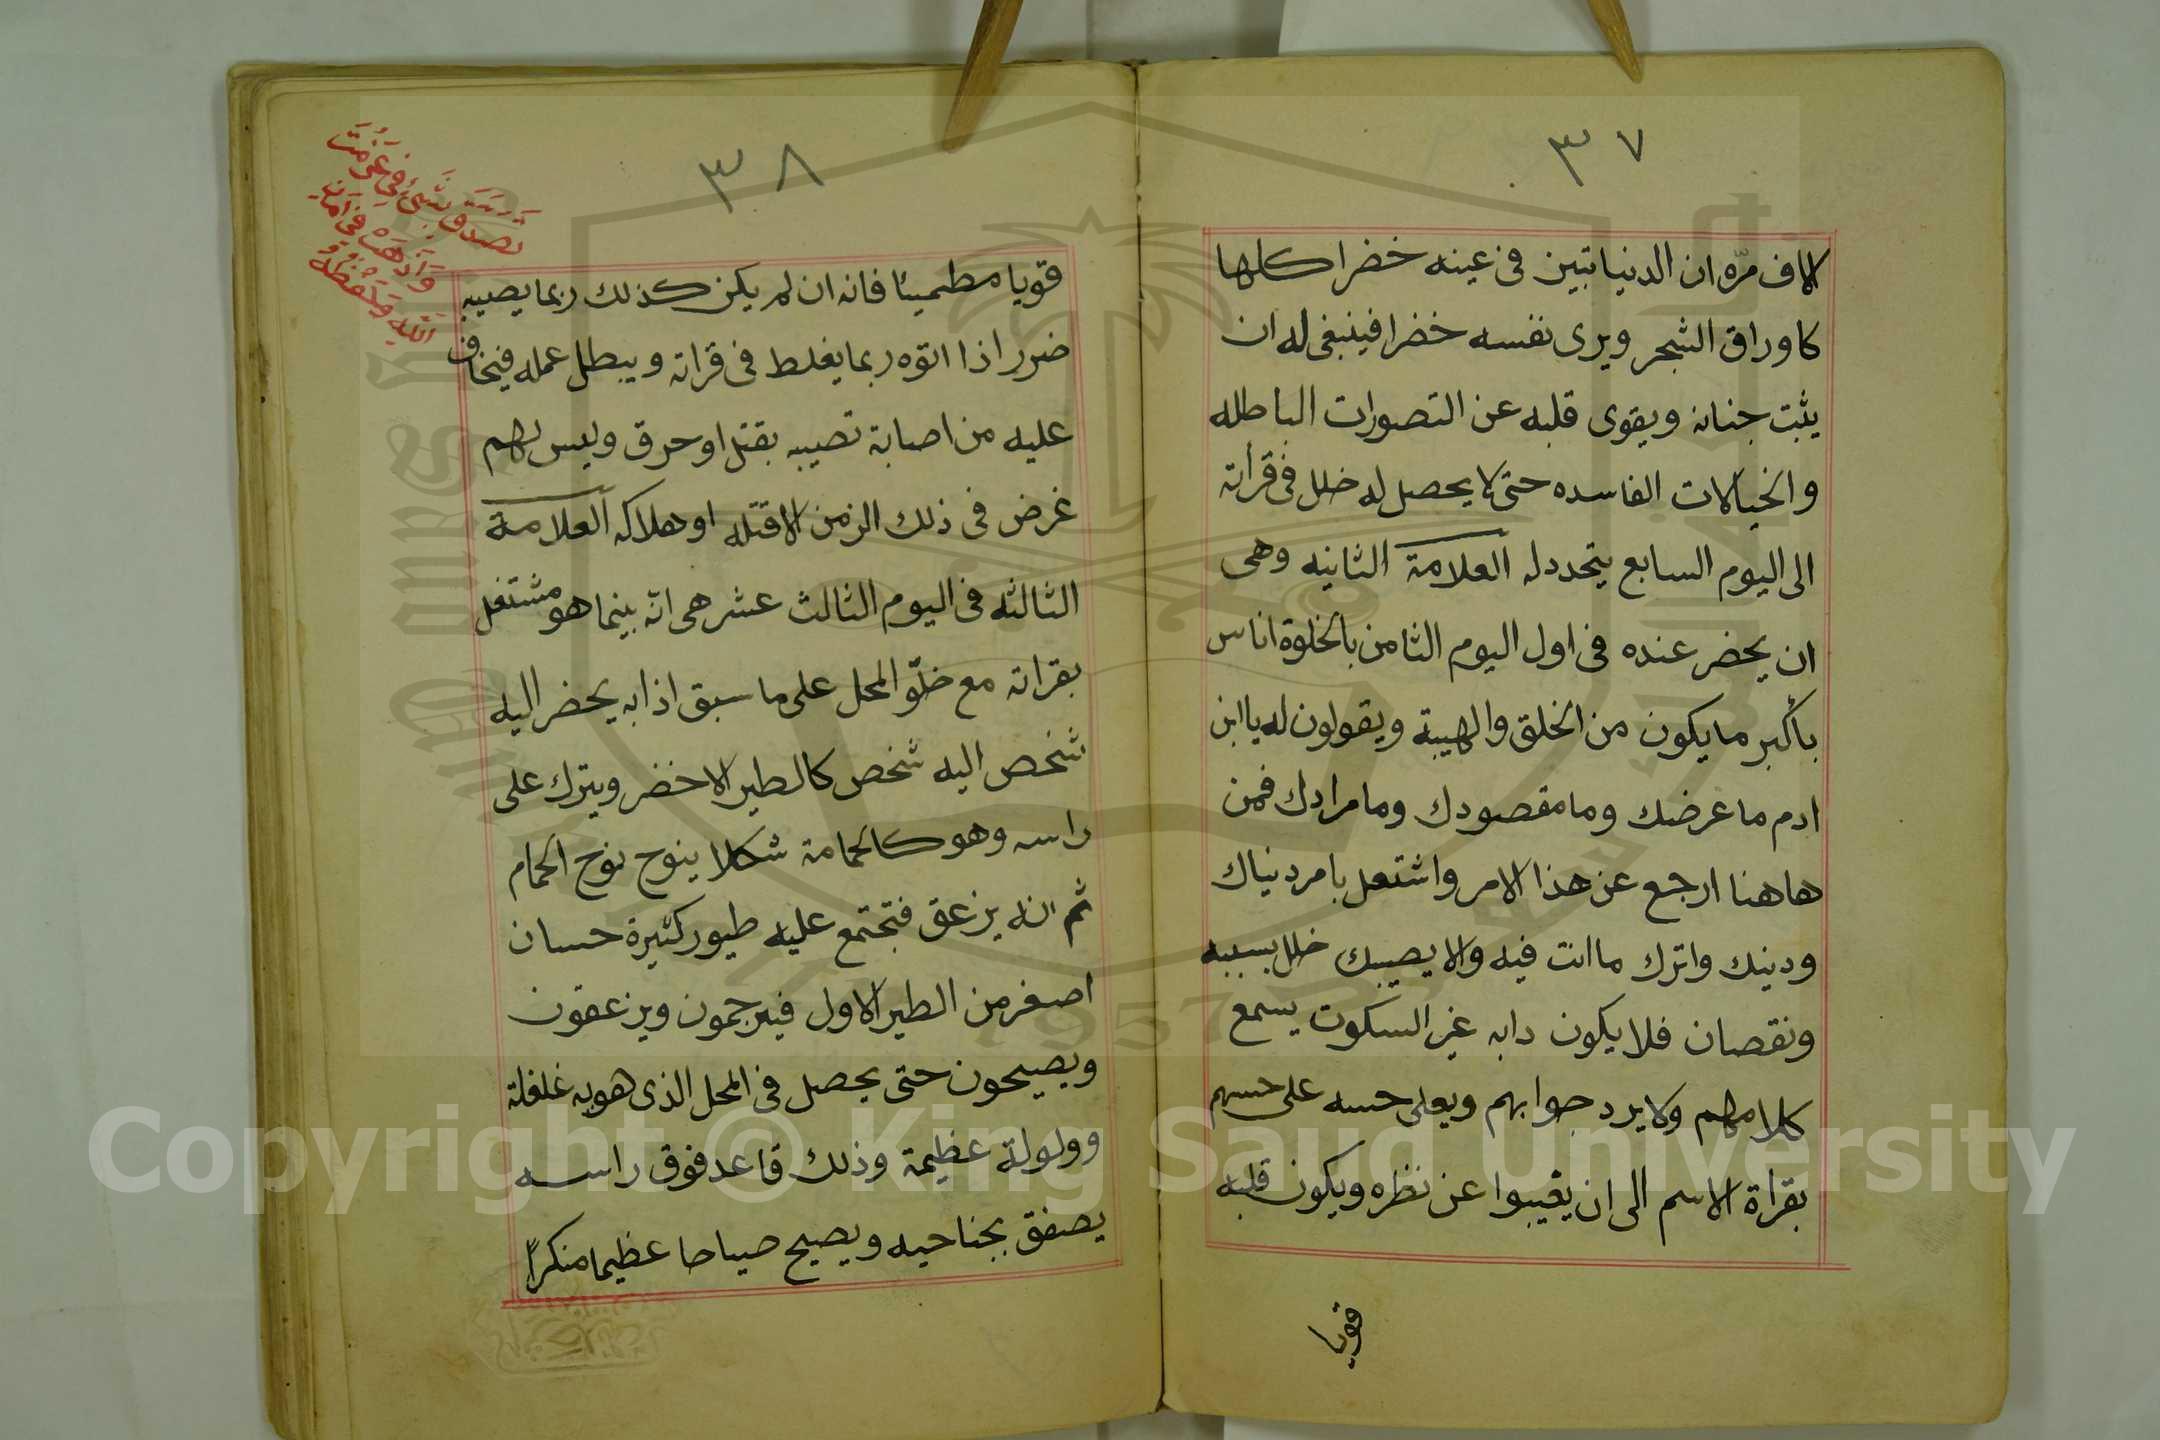 ٣٧
الاف مرّه ان الدنيا تبين فى عينه خضرا كلها
كاوراق الشجر ويرى نفسه خضرا فينبغى له ان
يثبت جنانه ويقوى قلبه عن التصورات الباطله
والخيالات الفاسده حتى لا يحصل له خلل فى قراته
الى اليوم السابع يتجدد له العلامة الثانيه وهى
ان يحضر عنده فى اول اليوم الثامن بالخلوة اناس
باكبر ما يكون من الخلق والهيبة ويقولون له يا ابن
ادم ما عرضك وما مقصودك وما مرادك فمن
هاهنا ارجع عن هذا الامر واشتغل بامر دنياك
ودينك واترك ما انت فيه والا يصيبك خلل بسببه
ونقصان فلا يكون دابه غير السكوت يسمع
كلامهم ولا يرد جوابهم ويعلى حسه على حسهم
بقراة الاسم الى ان يغيبوا عن نظره ويكون قلبه
قويا
٣٨
تصدق بشئ فى
واذهب فى امان
الله وحفظه
قويا مطمينا فانه ان لم يكن كذلك ربما يصيبه
ضرر اذا اتوه ربما يغلط فى قراته ويبطل عمله فيخاف
عليه من اصابة تصيبه بقتل او حرق وليس لهم
غرض فى ذلك الزمن الا قتله او هلاكه العلامة
الثالثه فى اليوم الثالث عشر هى انّه بينما هو مشتغل
بقراته مع خلّو المحل على ما سبق اذا به يحضر اليه
شخص اليه شخص كالطير الاخضر ويترك على
راسه وهو كالحمامة شكلا ينوح نوح الحمام
ثم انه يزعق فتجتمع عليه طيور كثيرة حسان
اصغر من الطير الاول فيرجمون ويزعقون
ويصيحون حتى يحصل فى المحل الذى هو به غلغلة
وولولة عظيمة وذلك قاعد فوق راسه
يصفق بجناحيه ويصيح صياحا عظيما منكراً
Copyright © King Saud University
1957